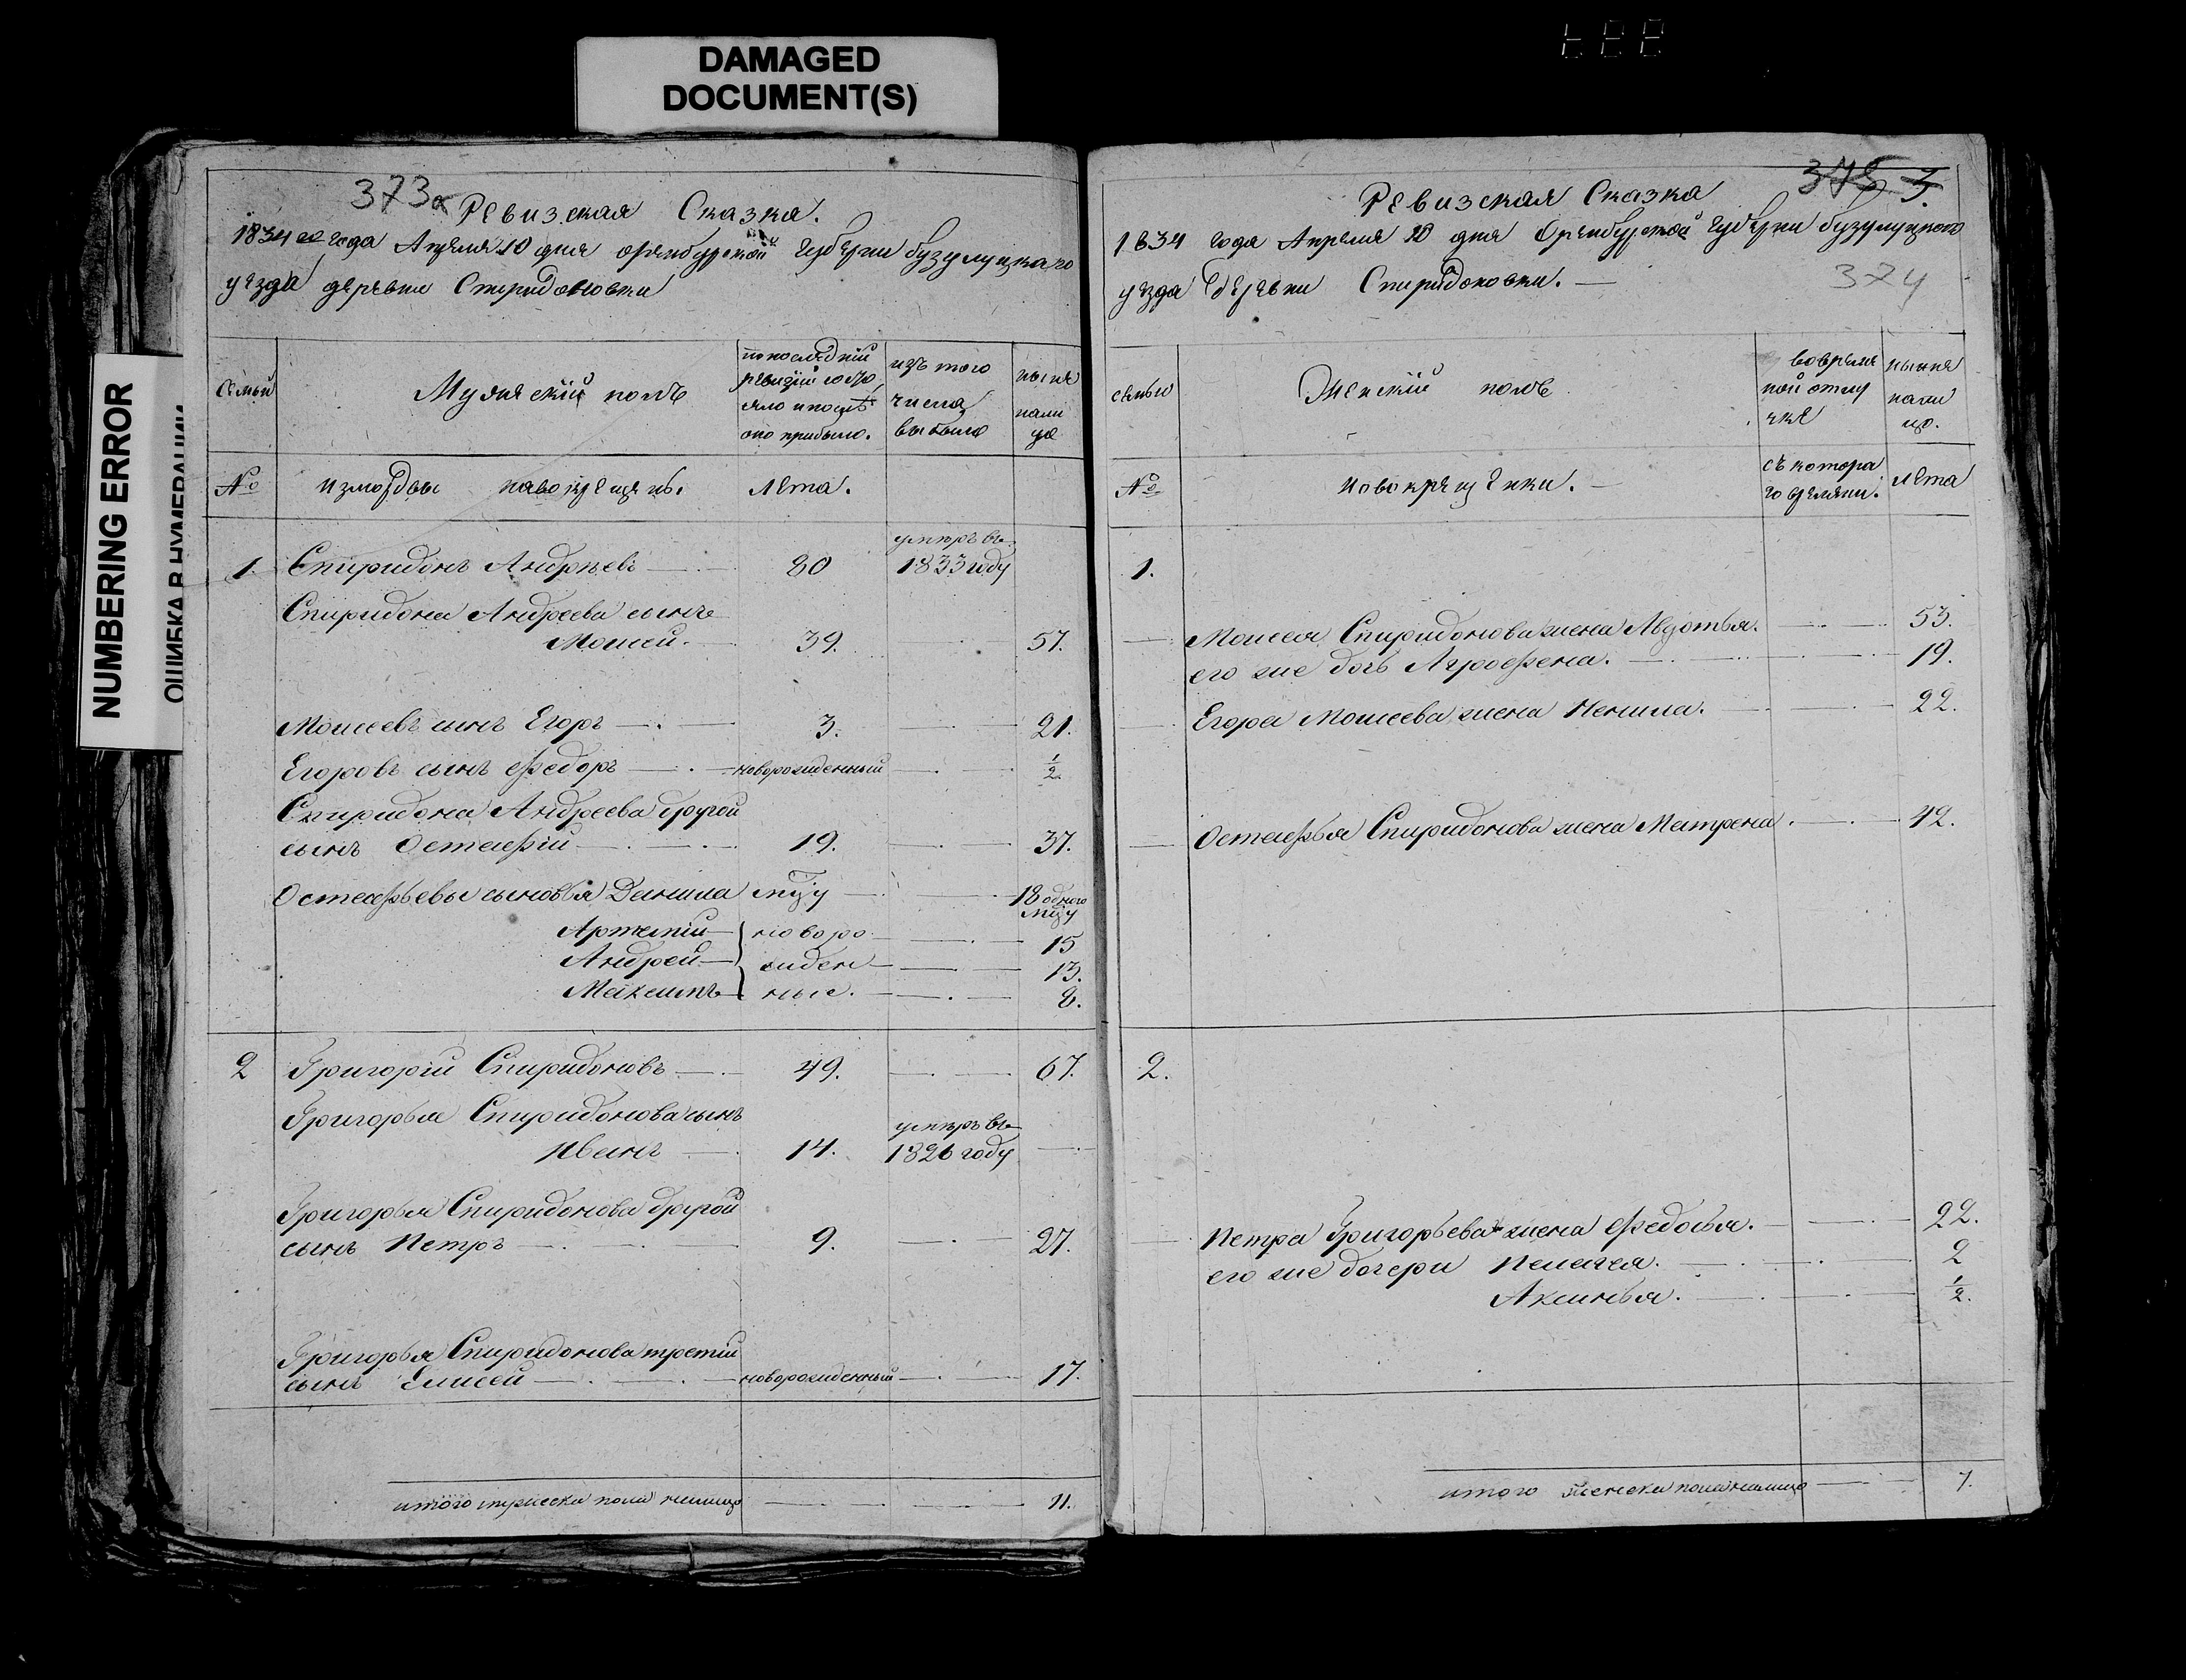 DAMAGED
DOCUMENT(S)
NUMBERING ERROR
ОШИБКА В НУМЕРАЦИИ
373а
Ревизская Сказка.
1834го года Апреля 10 дня оренбурской губерни бузулуцкаго
уезда деревни Спиридоновки
семьи
Мужескїй полъ
по последнїй
ревизїи состо
яло и после
оно прибыло.
изъ того
числа
выбыло
ныне
нали
цо
№
измордвы новокрещены.
Лета.
умѣръ въ
1. Спиридонъ Андрѣевъ 80 1833 году
Спиридона Андреева сынъ
Моисей. 39. 57.
Моисеевъ сынъ Егоръ 3. 21.
Егоровъ сынъ Федоръ новорожденный 1/2.
Спиридона Андреева другой
сынъ Остафiй 19. 37.
Остафьевы сыновья Данила мцу 18 одного
мцу
Артемiй новоро 15
Андрей жден 13.
Максимъ ные. 8.
2 Григорiй Спиридоновъ 49. 67.
Григорья Спиридонова сынъ
умѣръ въ
Иванъ 14. 1826 году
Григорья Спиридонова другой
сынъ Петръ 9. 27.
Григорья Спиридонова третiй
сынъ Елисей новорожденный 17.
итого мужеска пола налицо 11.
375 3.
Ревизская Сказка
1834 года Апреля 10 дня Оренбурской губерни бузулуцкого
уезда деревни Спиридоновки.
374
семьи
Женскїй полъ
вовремя
ной отлу
чке
ныне
нали
цо.
№
новокрещенки.
съ котора
го времяни.
Лета
1.
Моисея Спиридонова жена Авдотья. 53.
его же дочь Агрофена. 19.
Егора Моисеева жена Ненила. 22.
Остафья Спиридонова жена Матрена. 42.
2.
Петра Григорьева жена Федосья. 22.
его же дочери Пелагея. 2
Аксинья. 1/2.
итого женска пола налицо 7.